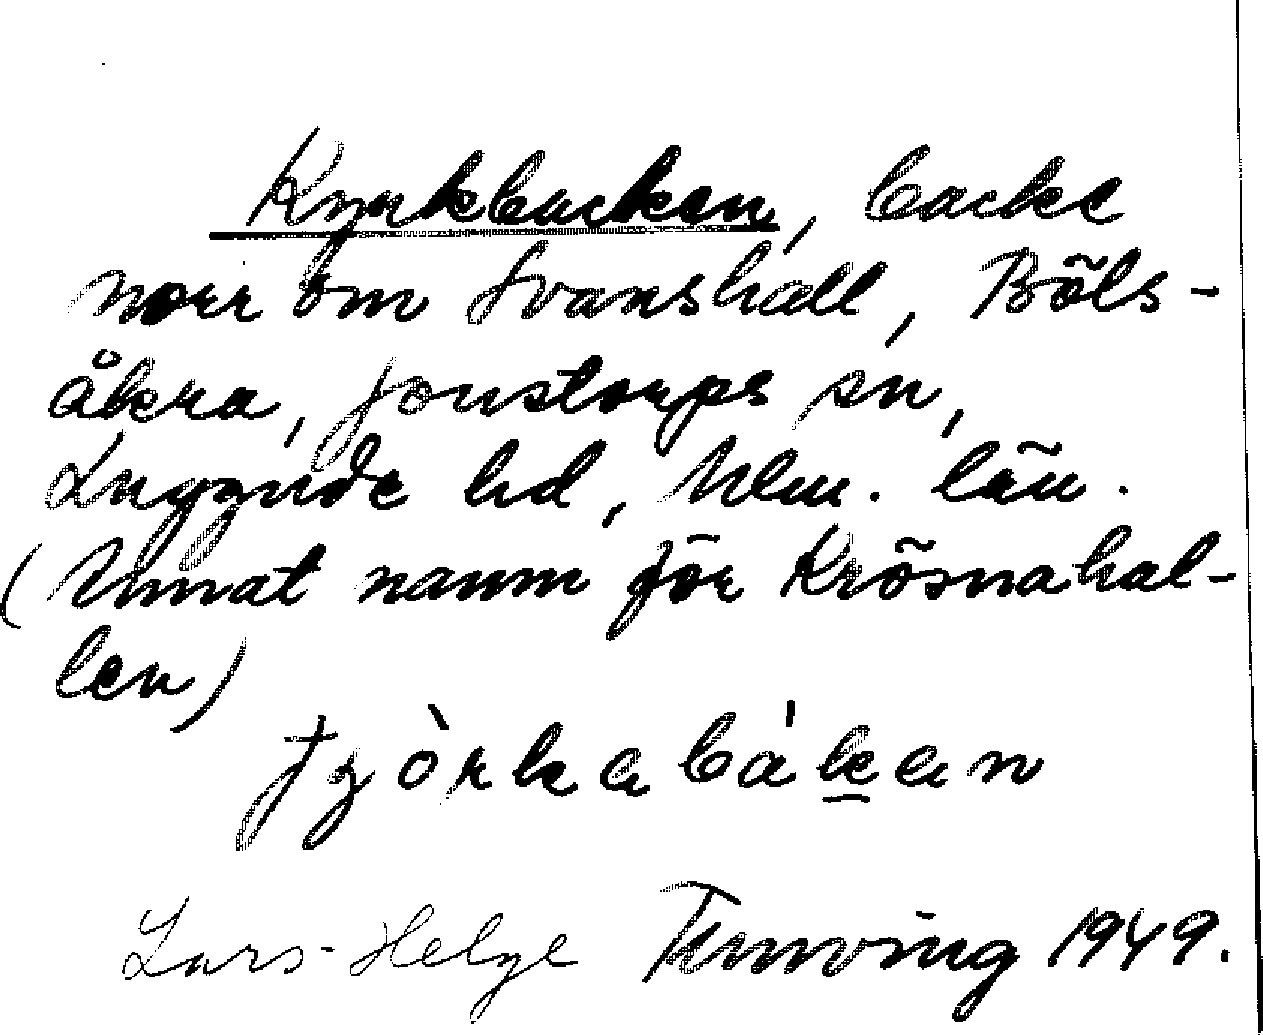 Kyrkbacken, backe
norr om Svanshall, Böls-
åkra, Jonstorps sn,
Luggude hd, Mlm. län.
(Annat namn för Krösnahal-
len)
tʒòrkabák̲an
Lars-Helge Tunving 1949.